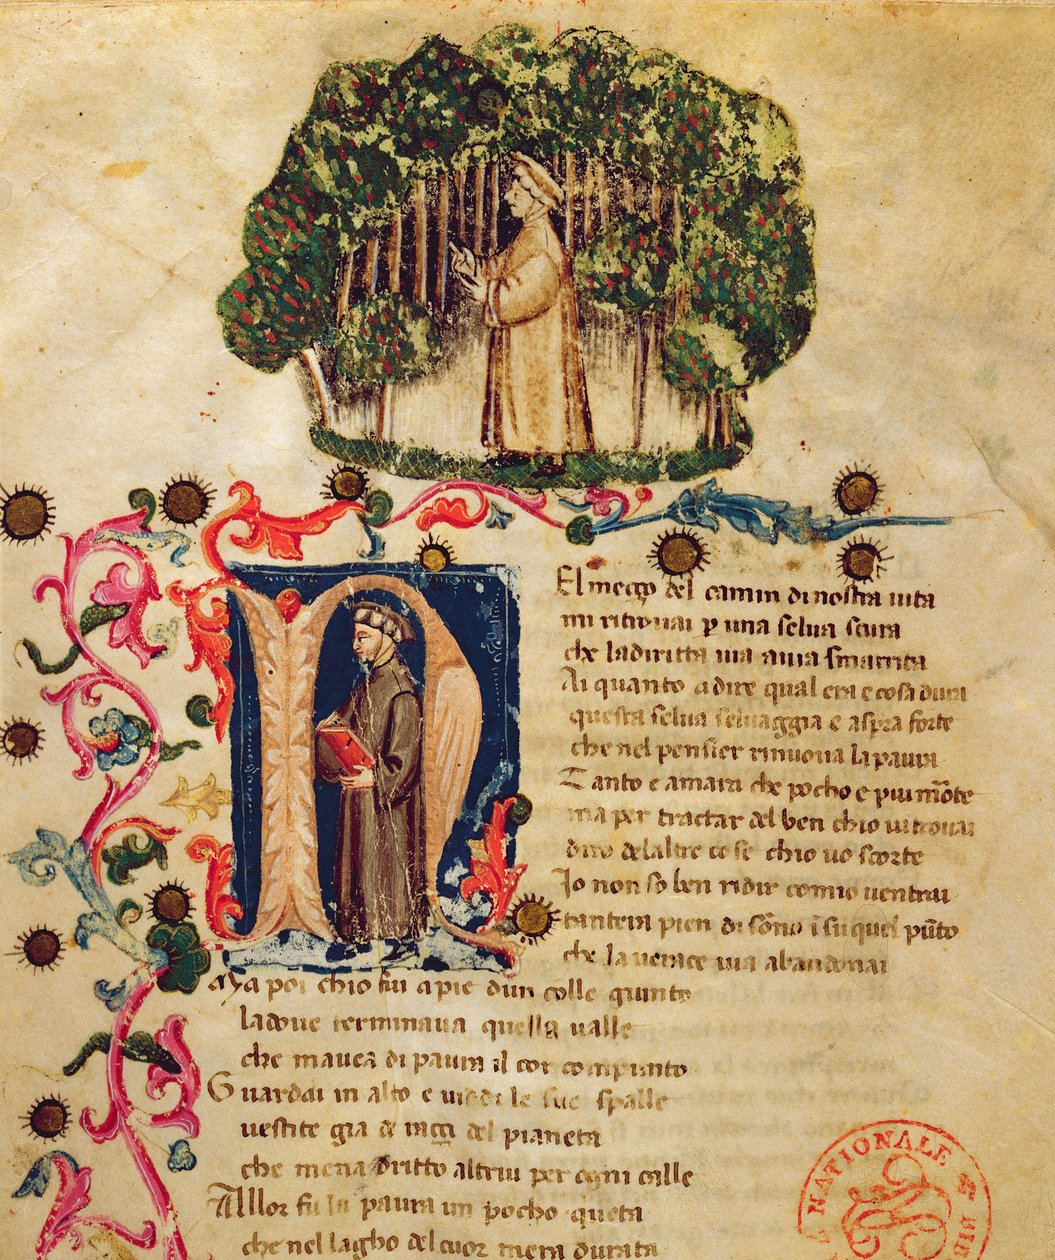 N
El meço del camin di nostra uita
mi ritrouai p una selua scura
che la diritta uia auia smarrita
Ai quanto a dire qual era e cosa dura
questa selua seluaggia e aspra forte
che nel pensier rinuoua la paura
Tanto e amara che pocho e piu mōte
ma per tractar del ben chio ui trouai
diro delaltre cose chio uo scorte
Io non so ben ridir comio uentrai
tantera pien di sōno ī su quel pūto
che la uerace uia abandonai
Ma poi chio fui a pie dun colle giunto
ladoue terminaua quella ualle
che mauea di paura il cor compunto
Guardai in alto e uiddi le sue spalle
uestite gia de raggi del pianeta
che mena dritto altrui per ogni calle
Allor fu la paura un pocho queta
che nel lagho del cuor mera durata
NATIONALE